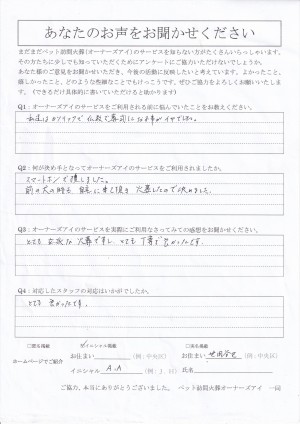 あなたのお声をお聞かせください
まだまだペット訪問火葬(オーナーズアイ)のサービスを知らない方がたくさんいらっしゃいます。
その方たちに少しでも知っていただくためにアンケートにご協力いただけないでしょうか。
あなた様のご意見をお聞かせいただき、今後の活動に反映したいと考えています。よかったこと、
嬉しかったこと、どのような些細なことでもけっこうです。ぜひご協力をよろしくお願いいたします。
(できるだけ具体的に書いていただけると助かります)
Q1:オーナーズアイのサービスをご利用される前に悩んでいたことをお教えください。
Q2:何が決め手となってオーナーズアイのサービスをご利用されましたか。
スマートホンで探しました。
前の犬の時も 自宅に来て頂き 火葬したので決めました。
Q3:オーナーズアイのサービスを実際にご利用なさってみての感想をお聞かせください。
とても 立派な 火葬ですし、とても 丁寧で良かったです。
Q4:対応したスタッフの対応はいかがでしたか。
とても 良かったです。
□匿名掲載
イニシャル掲載
□実名掲載
ホームページでご紹介
お住まい
(例:中央区)
お住まい 世田谷区 (例:中央区)
イニシャル A.A (例:J.H)
氏名
ご協力、本当にありがとうございました。 ペット訪問火葬オーナーズアイ 一同